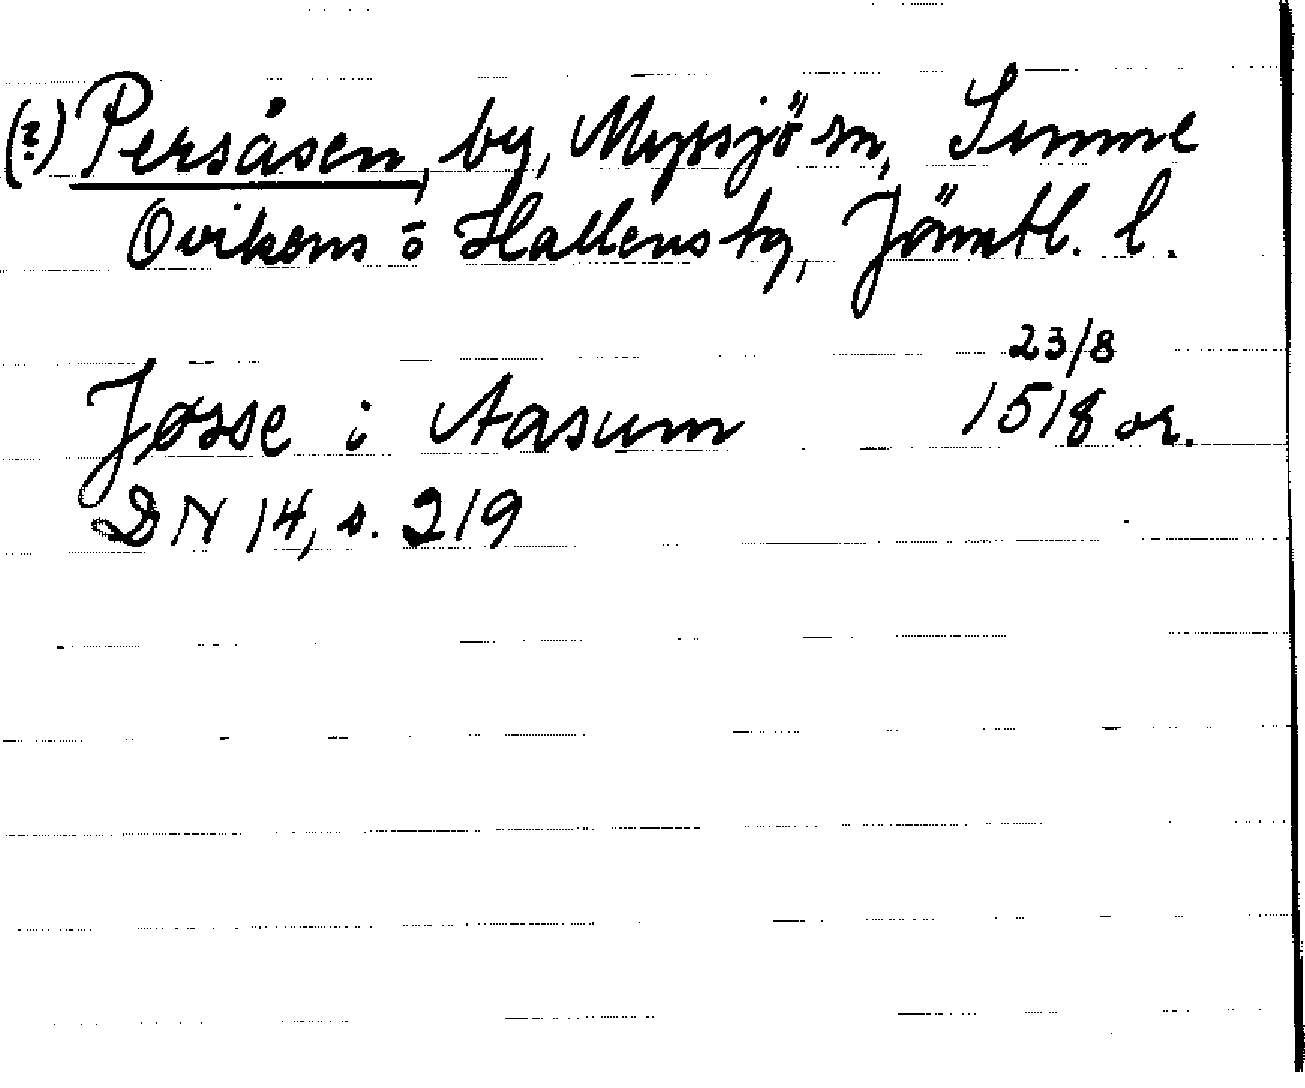 (?) Persåsen, by, Myssjö sn, Sunne
Ovikens o Hallens tg, Jämtl. l.
23/8
Jøsse i Aasum 1518 or.
DN 14, s. 219